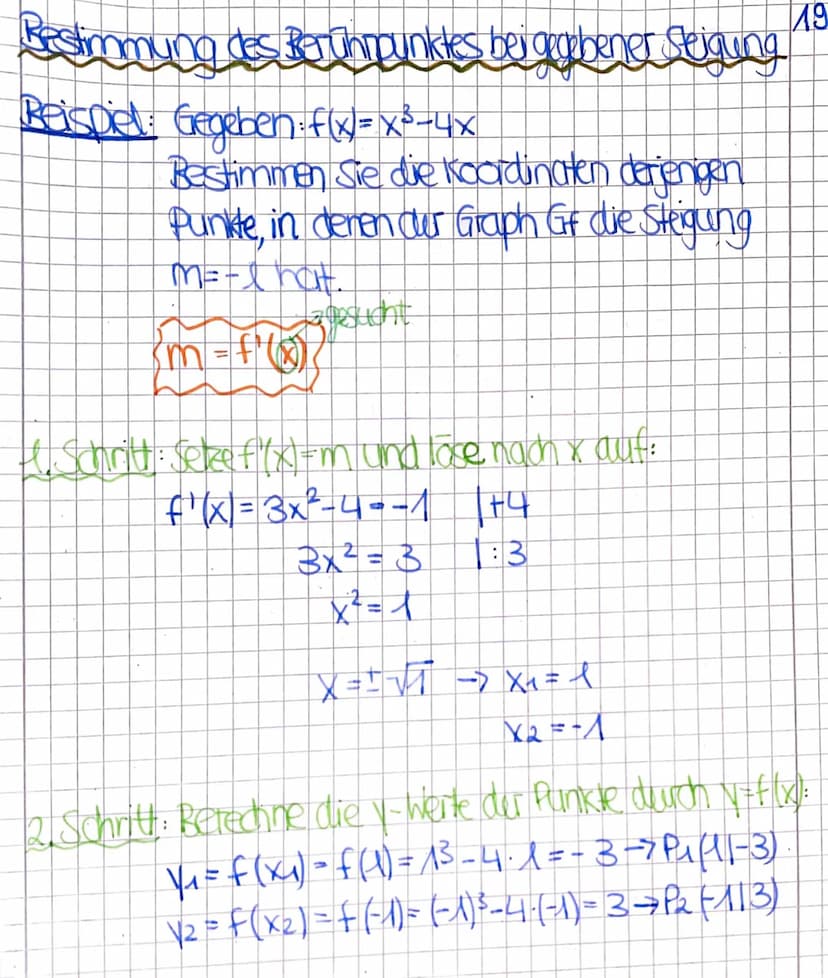 19
Bestimmung des Berührpunktes bei gegebener Steigung
Beispiel: Gegeben: f(x)=x³-4x
Bestimmen Sie die Koordinaten derjenigen
Punkte, in denen der Graph Gf die Steigung
m=-1 hat.
→gesucht
m = f'(x)
1. Schritt: Setze f'(x)=m und löse nach x auf:
f'(x)= 3x²-4=-1 |+4
3x² = 3 |:3
x² = 1
x = ±√1 → x₁ = 1
x₂ = -1
2. Schritt: Berechne die y-Werte der Punkte durch y=f(x):
y₁ = f(x₁) = f(1) = 1³ - 4·1 = -3 → P₁(1|-3)
y₂ = f(x₂) = f(-1) = (-1)³-4·(-1) = 3 → P₂(-1|3)